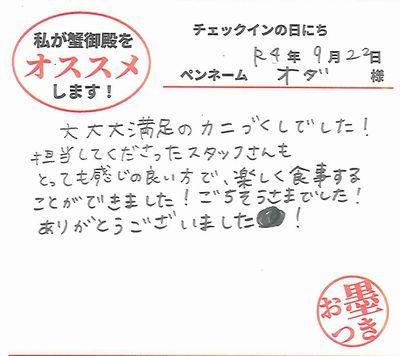 私が蟹御殿を
オススメ
します!
チェックインの日にち
R4年 9月22日
ペンネーム オダ 様
大大大満足のカニづくしでした!
担当してくださったスタッフさんも
とっても感じの良い方で、楽しく食事する
ことができました!ごちそうさまでした!
ありがとうございました!
お墨つき